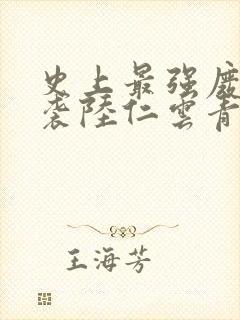 史上最强废
袭陆仁云青
王海芳